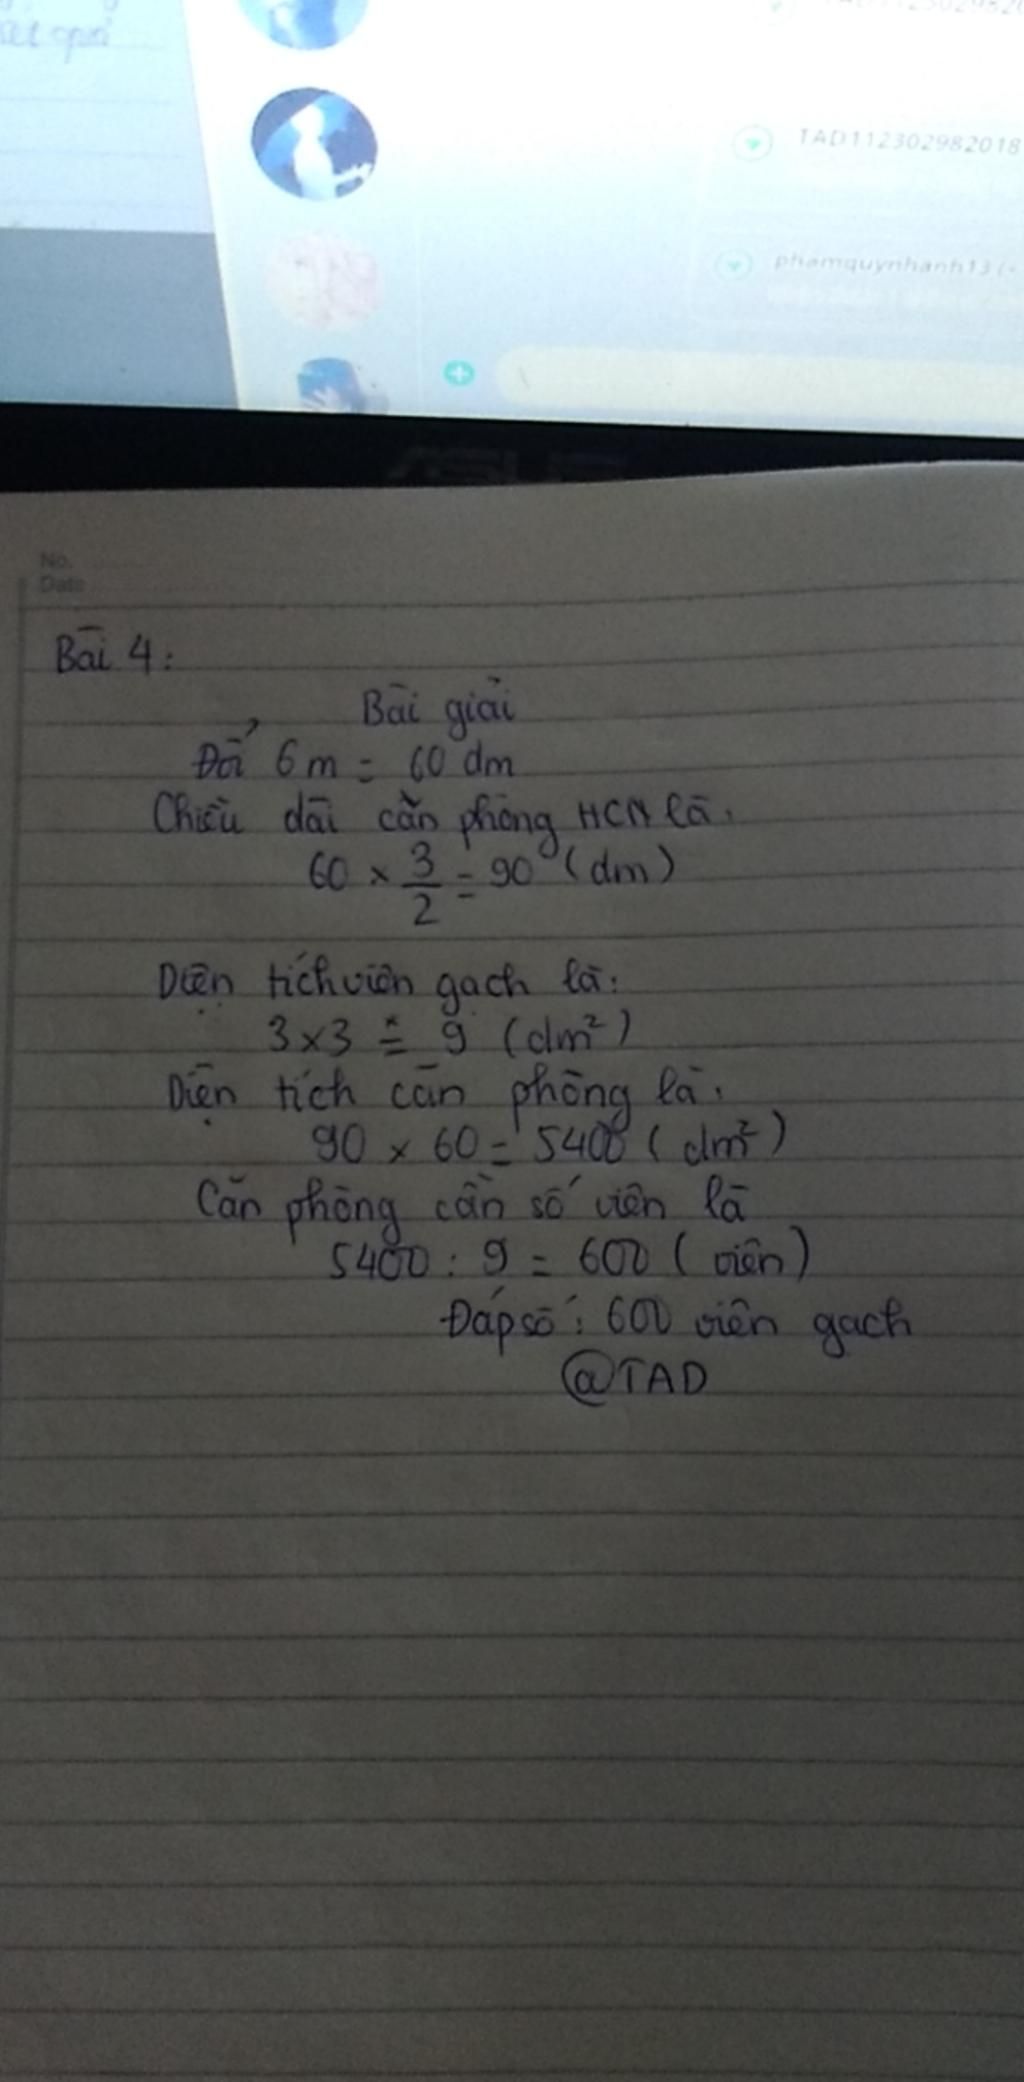 TAD112302982018
phamquynhanh13 (
ASUS
No.
Date
Bài 4:
Bài giải
Đổi 6m = 60 dm
Chiều dài căn phòng HCN là:
60 × 3/2 = 90 (dm)
Diện tích viên gạch là:
3×3 = 9 (dm²)
Diện tích căn phòng là:
90 × 60 = 5400 (dm²)
Căn phòng cần số viên là
5400 : 9 = 600 (viên)
Đáp số: 600 viên gạch
@TAD